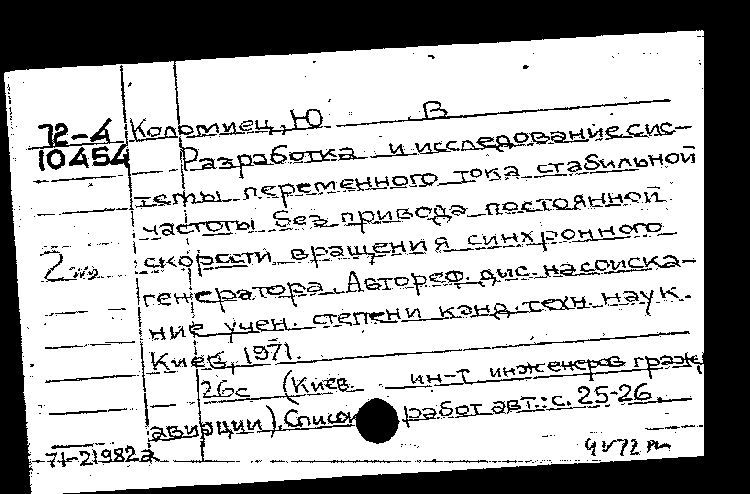 72-4 Коломиец, Ю В
10454 Разработка и исследование сис-
темы переменного тока стабильной
частоты без привода постоянной
скорости вращения синхронного
генератора. Автореф. дис. на соиска-
ние учен. степени канд. техн. наук.
Киев, 1971.
26с (Киев. ин-т инженеров граж.
авиации). Список работ авт.: с. 25-26.
71-21982а